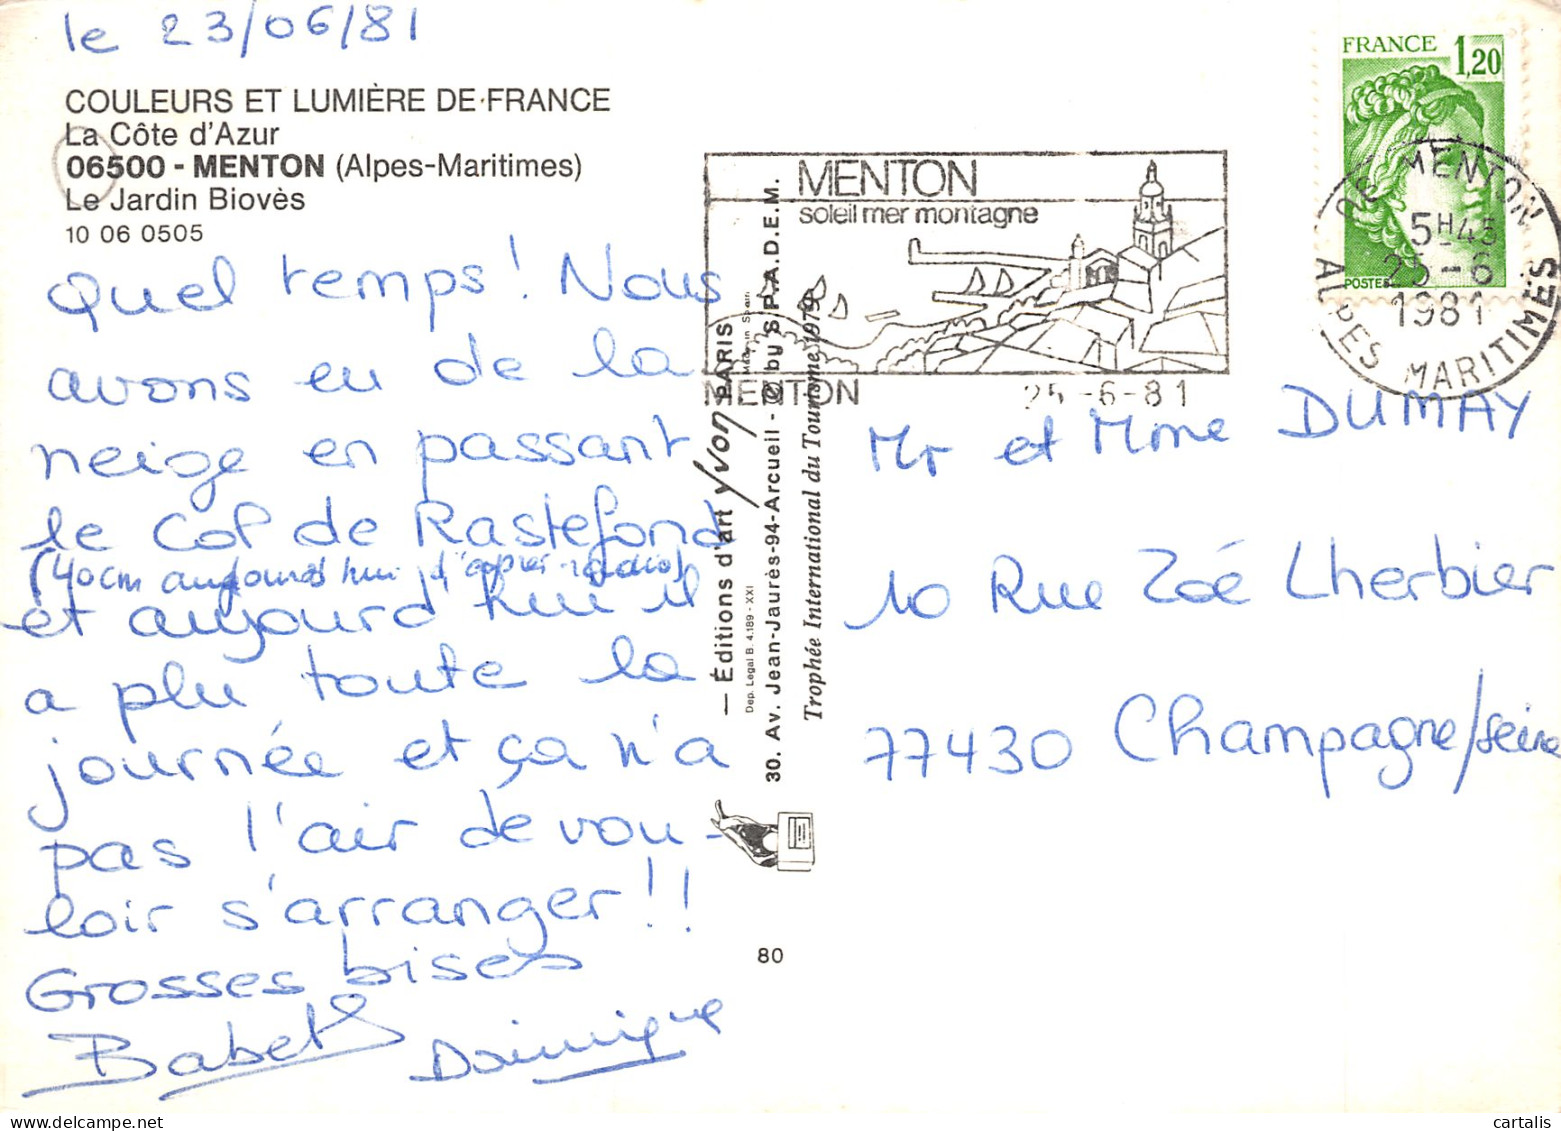 le 23/06/81
COULEURS ET LUMIÈRE DE FRANCE
La Côte d'Azur
06500 - MENTON (Alpes-Maritimes)
Le Jardin Biovès
10 06 0505
Quel temps! Nous
avons eu de la
neige en passant
le Col de Rastefond
(40cm aujourd'hui d'après radio)
et aujourd'hui il
a plu toute la
journée et ça n'a
pas l'air de vou-
loir s'arranger!!
Grosses bises
Babeth
Dominique
— Éditions d'art Yvon PARIS
Dep. Legal B. 4.189 - XXI
30. Av. Jean-Jaurès-94-Arcueil - © by S.P.A.D.E.M.
Trophée International du Tourisme 1979
80
MENTON
soleil mer montagne
MENTON 25-6-81
FRANCE 1,20
POSTES
DE MENTON
5H45
25-6
1981
ALPES MARITIMES
Mr et Mme DUMAY
10 Rue Zoé Lherbier
77430 Champagne/Seine
cartalis